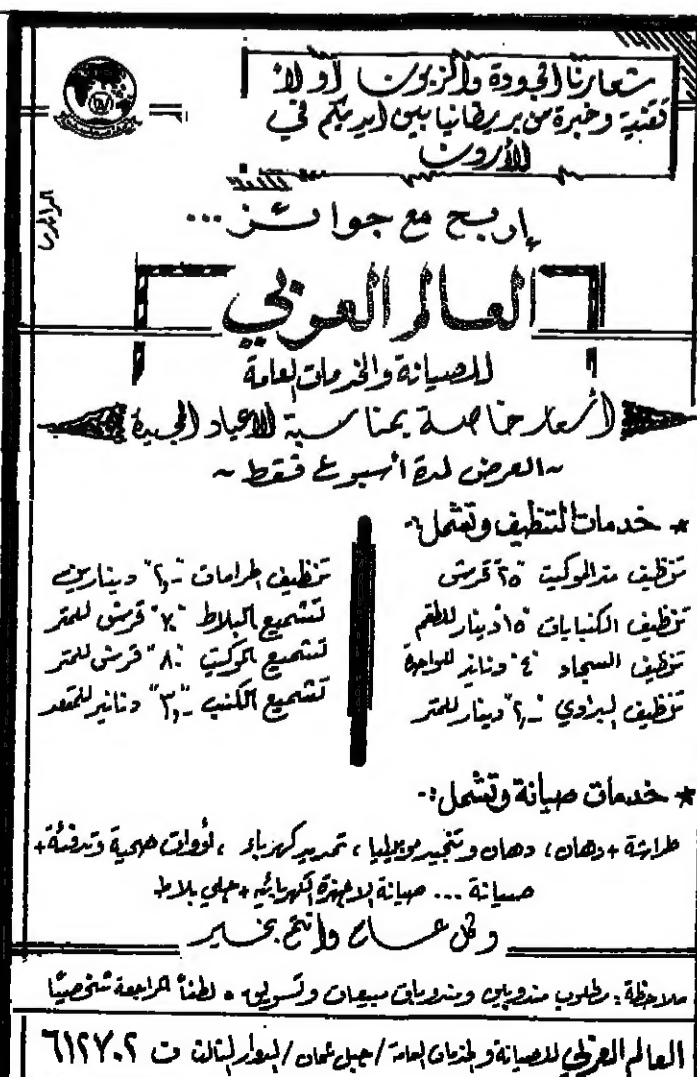 شعارنا الجودة والزبون أولاً
تقنية وخبرة من بريطانيا بين أيديكم في
الأردن
إربح مع جوائز ...
العالم العربي
للصيانة والخدمات العامة
أسعار خاصة بمناسبة الأعياد المجيدة
~ العرض لمدة أسبوع فقط ~
* خدمات التنظيف وتشمل :-
تنظيف متر الموكيت "٢٥" قرش
تنظيف الكنبايات "١٥" دينار للطقم
تنظيف السجاد "٤" دنانير للواحدة
تنظيف البرادي "-,٢" دينار للمتر
تنظيف الحرامات "-,٢" دينارين
تشميع البلاط "٧٠" قرش للمتر
تشميع الموكيت "٨٠" قرش للمتر
تشميع الكنب "-,٣" دنانير للمقعد
* خدمات صيانة وتشمل :-
طراشة + دهان، دهان وتنجيد موبيليا، تمديد كهرباء، أدوات صحية وتدفئة +
صيانة ... صيانة الاجهزة الكهربائيه + جلي بلاط
وكل عام وانتم بخير
ملاحظة: مطلوب مندوبين ومندوبات مبيعات وتسويق. لطفاً المراجعة شخصيًا
العالم العربي للصيانة والخدمات العامة / جبل عمان / الدوار الثالث ت ٦١٢٧٠٢